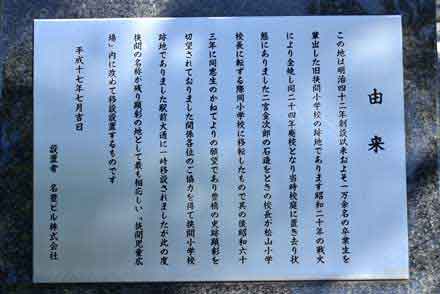 由来
この地は明治四十二年創設以来およそ一万余名の卒業生を
輩出した旧狭間小学校の跡地であります昭和二十年の戦火
により全焼し同二十四年廃校となり当時校庭に置き去り状
態にありました二宮金次郎の石造をときの校長が松山小学
校長に転ずる際同小学校に移転したもので其の後昭和六十
三年に同窓生のかねてよりの願望であり豊橋の史跡顕彰を
切望されておりました関係各位のご協力を得て狭間小学校
跡地でありました駅前大通に一時移設されましたが此の度
狭間の名称が残り顕彰の地として最も相応しい、"狭間児童広
場〟内に改めて移設設置するものです
平成十七年七月吉日
設置者 名豊ビル株式会社